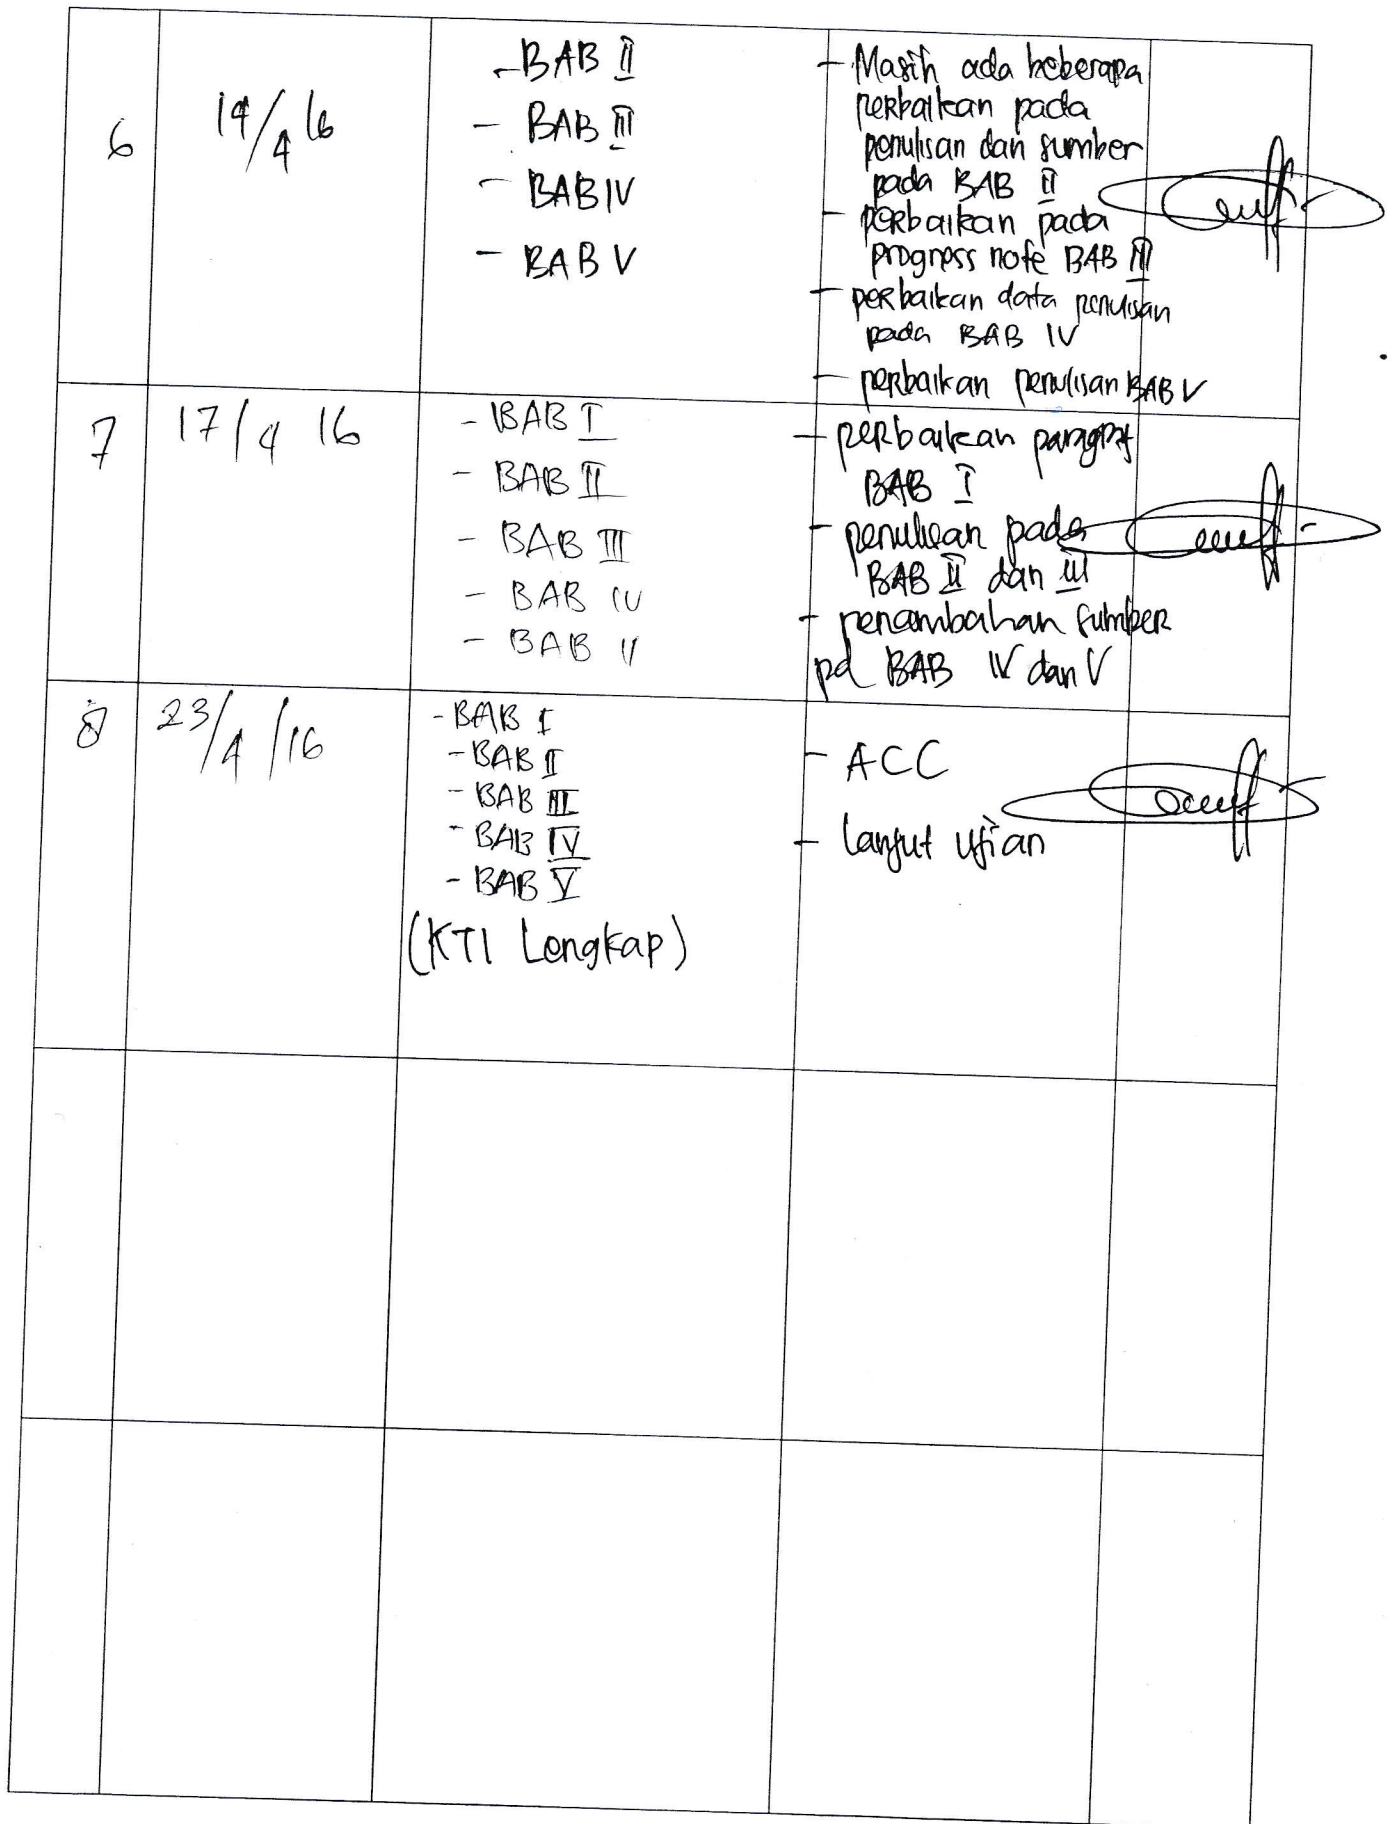 6
14/4 16
- BAB II
- BAB III
- BAB IV
- BAB V
- Masih ada beberapa
perbaikan pada
penulisan dan sumber
pada BAB II
- perbaikan pada
progress note BAB III
- perbaikan data penulisan
pada BAB IV
- perbaikan penulisan BAB V
7
17/4 16
- BAB I
- BAB II
- BAB III
- BAB IV
- BAB V
- perbaikan paragraf
BAB I
- penulisan pada
BAB II dan III
- penambahan sumber
pd BAB IV dan V
8
23/4/16
- BAB I
- BAB II
- BAB III
- BAB IV
- BAB V
(KTI Lengkap)
- ACC
- Lanjut Ujian